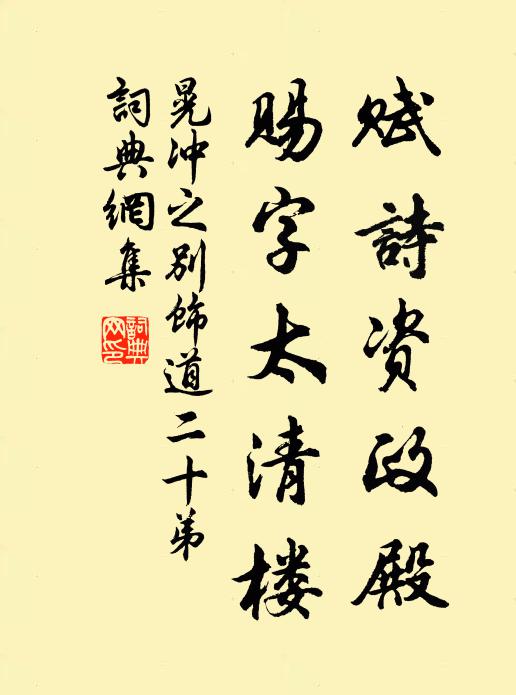 赋詩资政殿
赐字太清楼
晁冲之别饰道二十弟
詞典網集
詞典网印